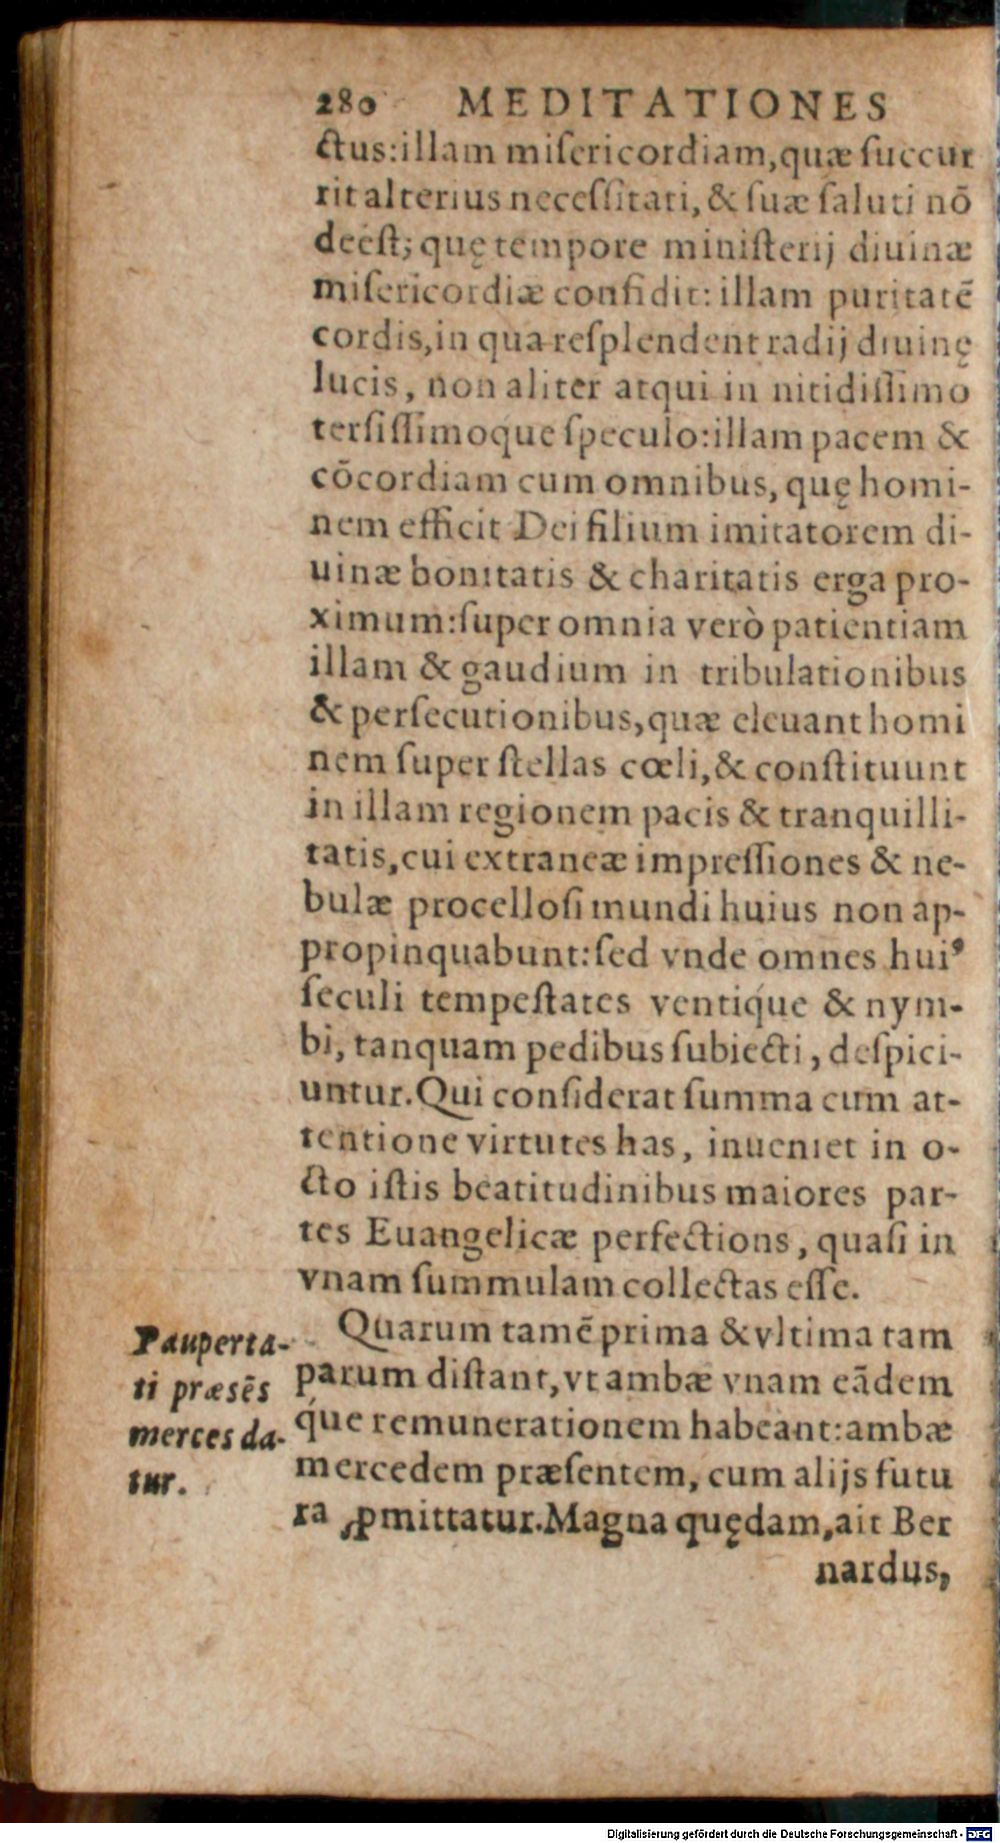 280 MEDITATIONES
ctus:illam miſericordiam,quæ ſuccur
rit alterius neceſſitati, & ſuæ ſaluti nō
deeſt; quę tempore miniſterij diuinæ
miſericordiæ confidit: illam puritatē
cordis,in qua reſplendent radij diuinę
lucis, non aliter atqui in nitidiſſimo
terſiſſimoque ſpeculo:illam pacem &
cōcordiam cum omnibus, quę homi-
nem efficit Dei filium imitatorem di-
uinæ bonitatis & charitatis erga pro-
ximum:ſuper omnia verò patientiam
illam & gaudium in tribulationibus
& perſecutionibus,quæ eleuant homi
nem ſuper ſtellas cœli,& conſtituunt
in illam regionem pacis & tranquilli-
tatis,cui extraneæ impreſſiones & ne-
bulæ procelloſi mundi huius non ap-
propinquabunt:ſed vnde omnes huiꝰ
ſeculi tempeſtates ventique & nym-
bi, tanquam pedibus ſubiecti, deſpici-
untur. Qui conſiderat ſumma cum at-
tentione virtutes has, inueniet in o-
cto iſtis beatitudinibus maiores par-
tes Euangelicæ perfections, quaſi in
vnam ſummulam collectas eſſe.
Quarum tamē prima & vltima tam
parum diſtant, vt ambæ vnam eādem
que remunerationem habeant:ambæ
mercedem præſentem, cum alijs futu
ra ꝓmittatur. Magna quędam,ait Ber
nardus,
Pauperta-
ti præsēs
merces da-
tur.
Digitalisierung gefördert durch die Deutsche Forschungsgemeinschaft - DFG